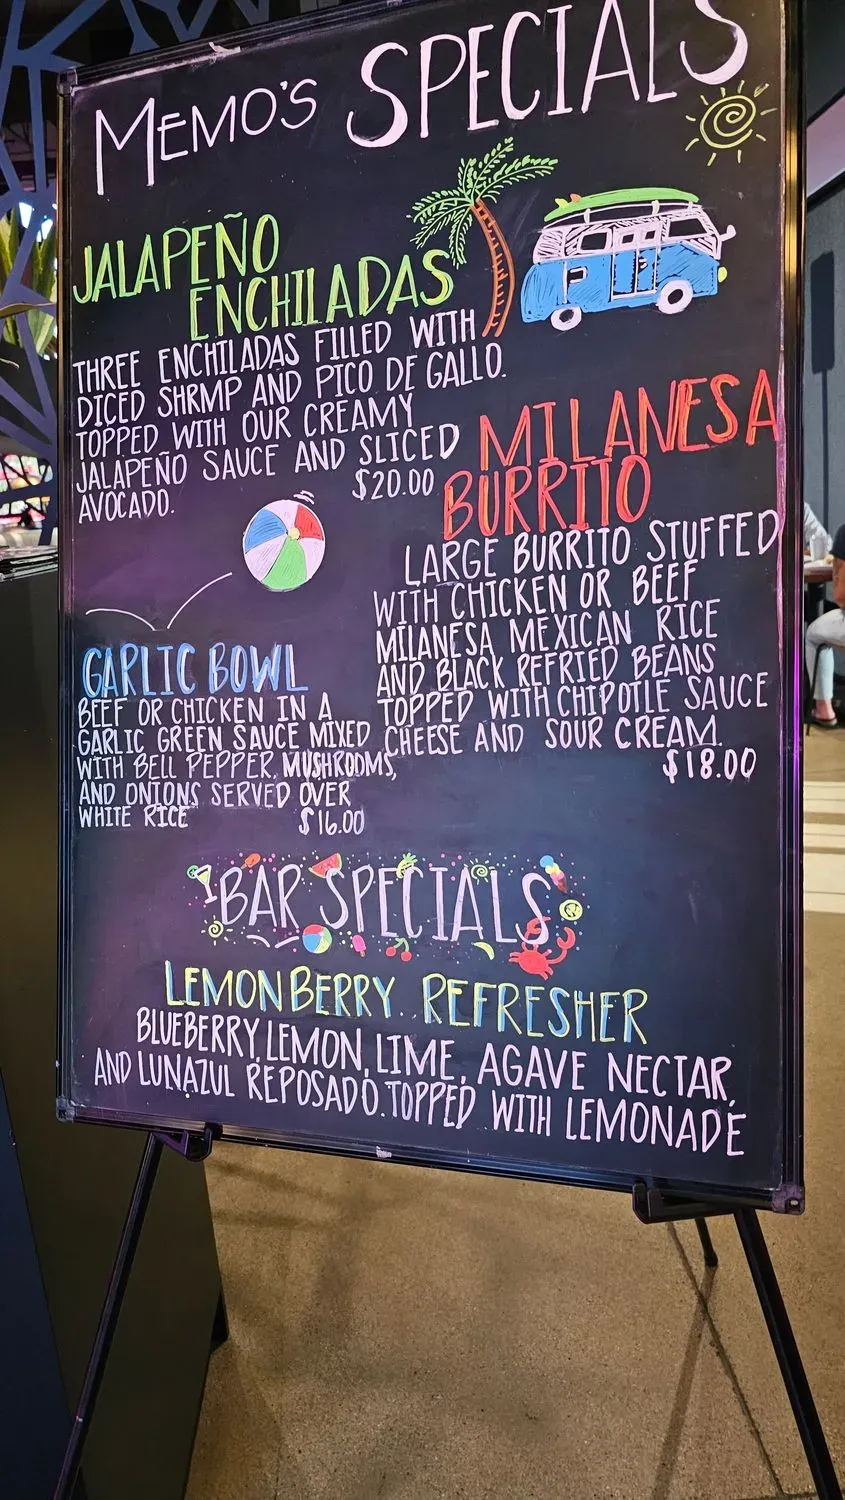 MEMO'S SPECIALS
JALAPEÑO
ENCHILADAS
THREE ENCHILADAS FILLED WITH
DICED SHRMP AND PICO DE GALLO.
TOPPED WITH OUR CREAMY
JALAPEÑO SAUCE AND SLICED
AVOCADO.
$20.00
MILANESA
BURRITO
LARGE BURRITO STUFFED
WITH CHICKEN OR BEEF
MILANESA MEXICAN RICE
AND BLACK REFRIED BEANS
TOPPED WITH CHIPOTLE SAUCE
CHEESE AND SOUR CREAM.
$18.00
GARLIC BOWL
BEEF OR CHICKEN IN A
GARLIC GREEN SAUCE MIXED
WITH BELL PEPPER, MUSHROOMS,
AND ONIONS SERVED OVER
WHITE RICE $16.00
BAR SPECIALS
LEMONBERRY REFRESHER
BLUEBERRY, LEMON, LIME, AGAVE NECTAR,
AND LUNAZUL REPOSADO. TOPPED WITH LEMONADE